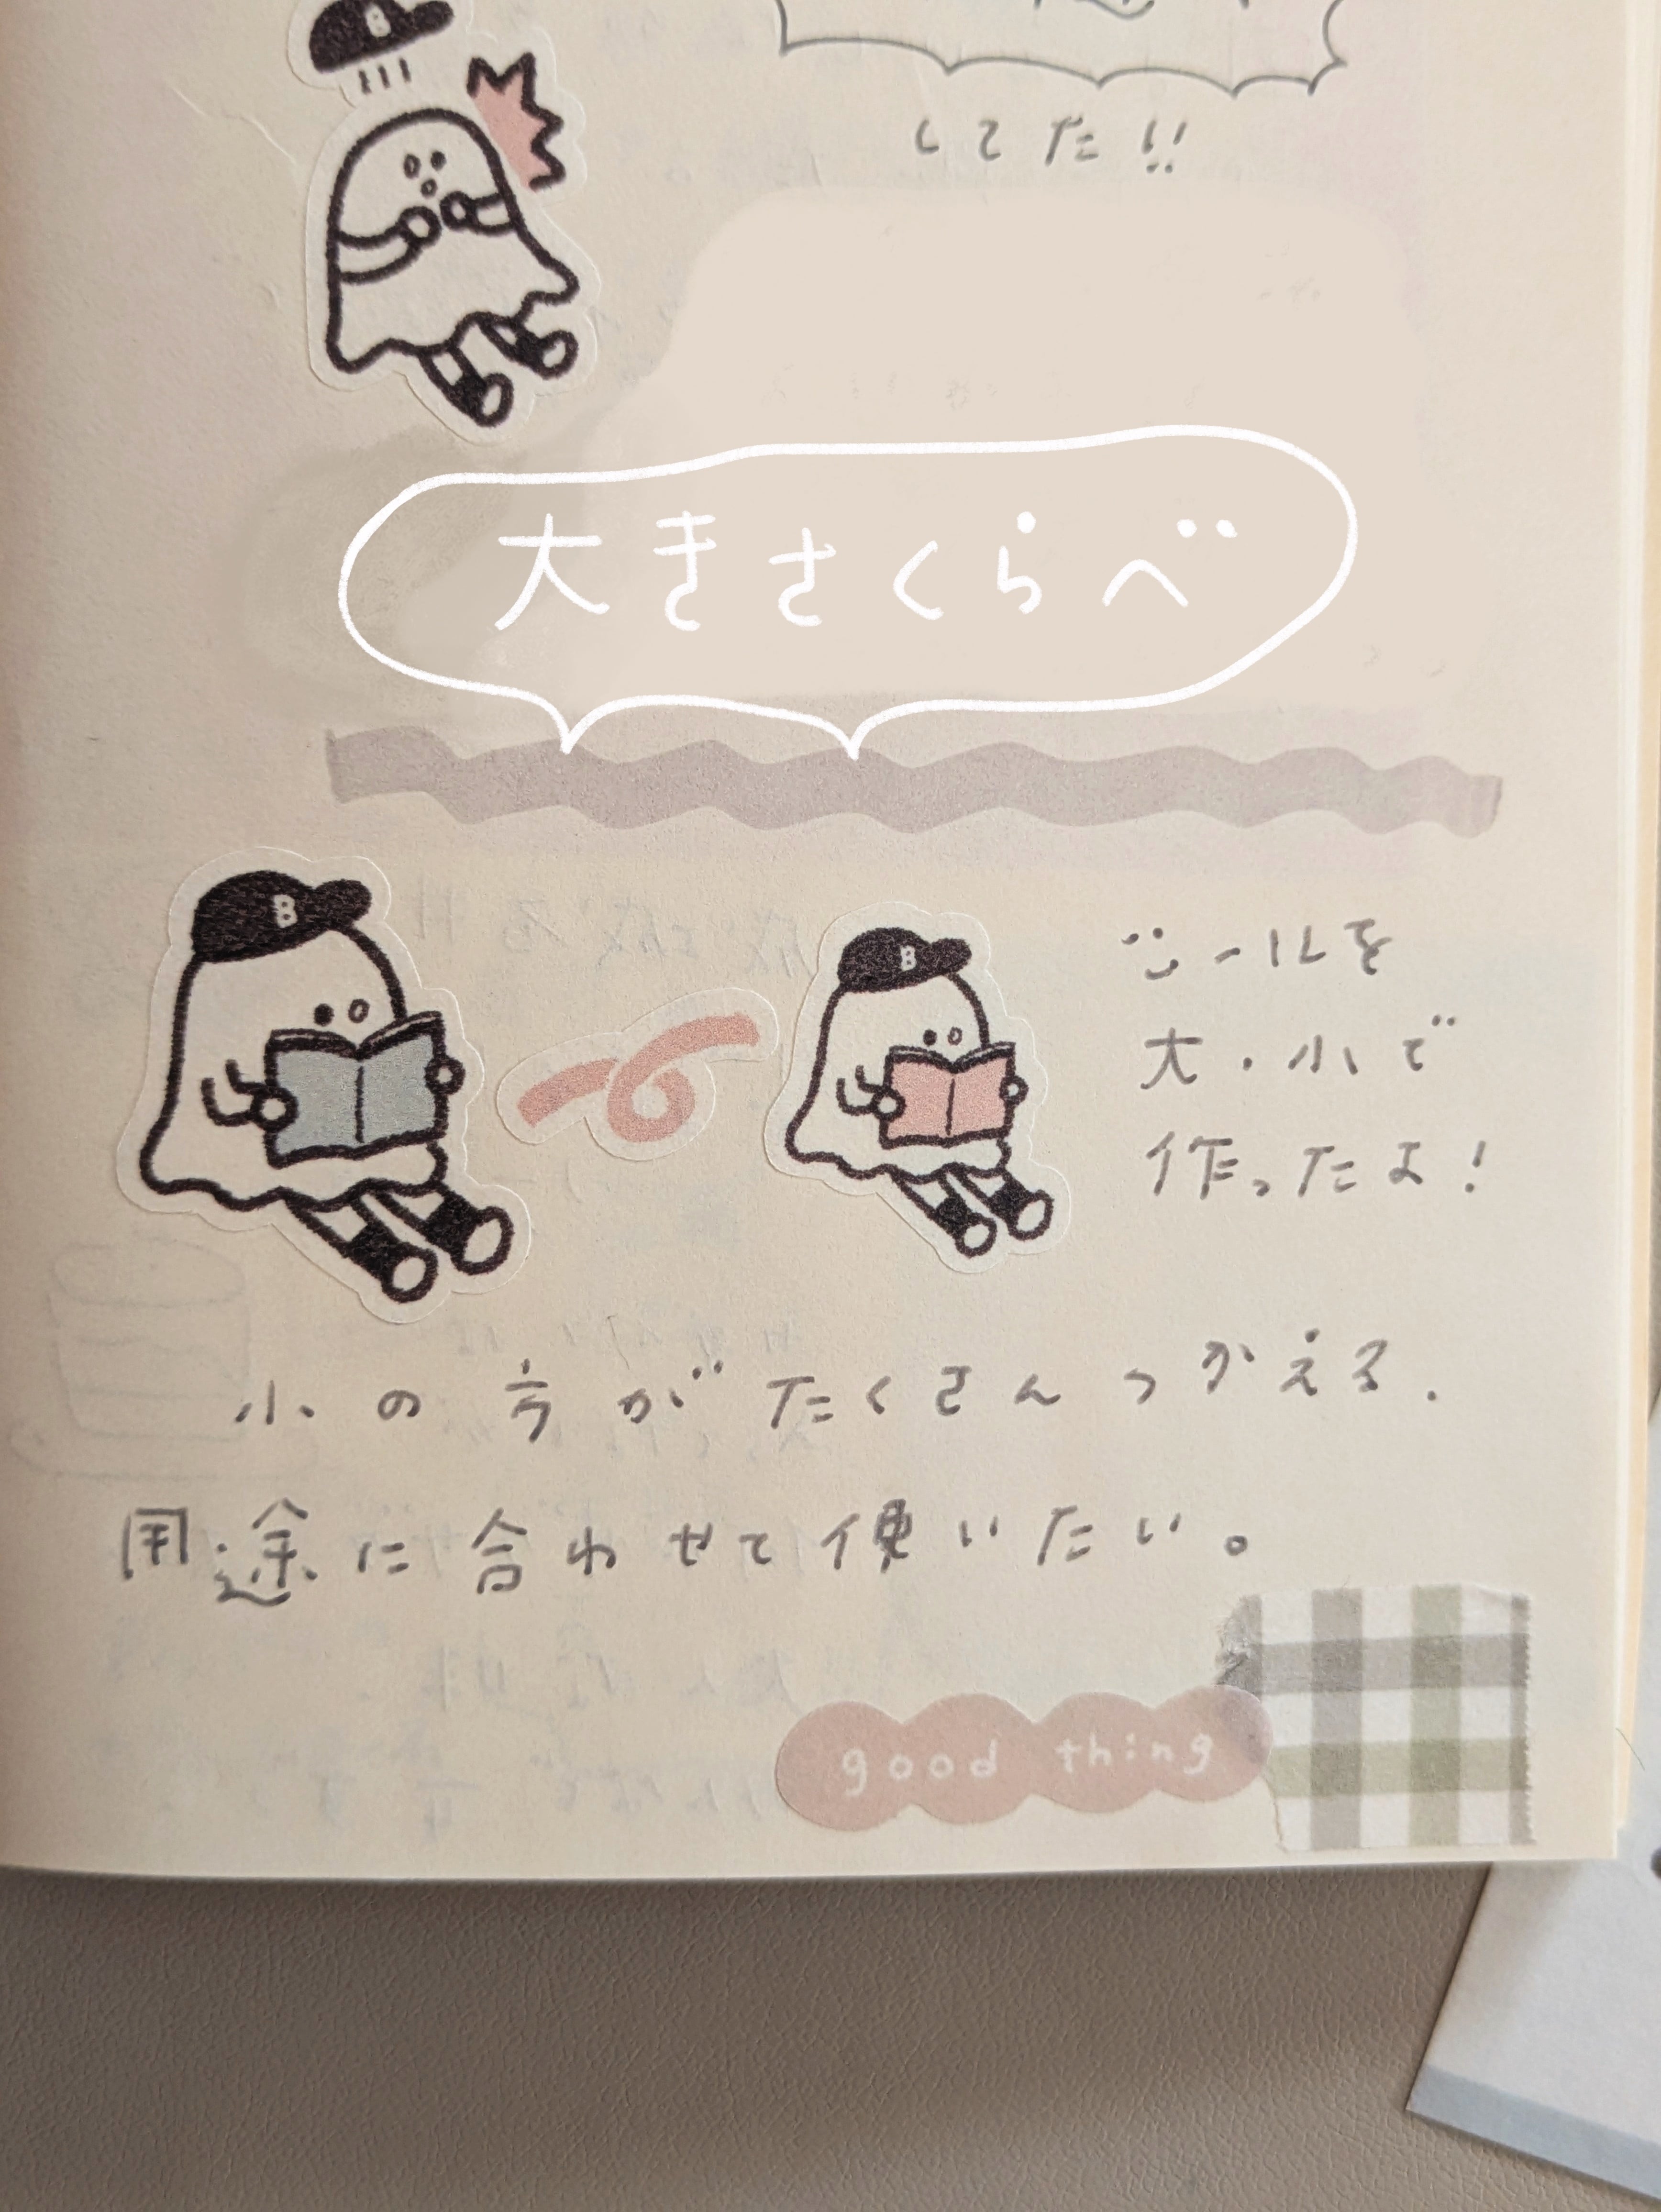 B
してた!!
大きさくらべ
B
B
シールを
大・小で
作ったよ!
小の方がたくさんつかえる.
用途に合わせて使いたい。
good thing